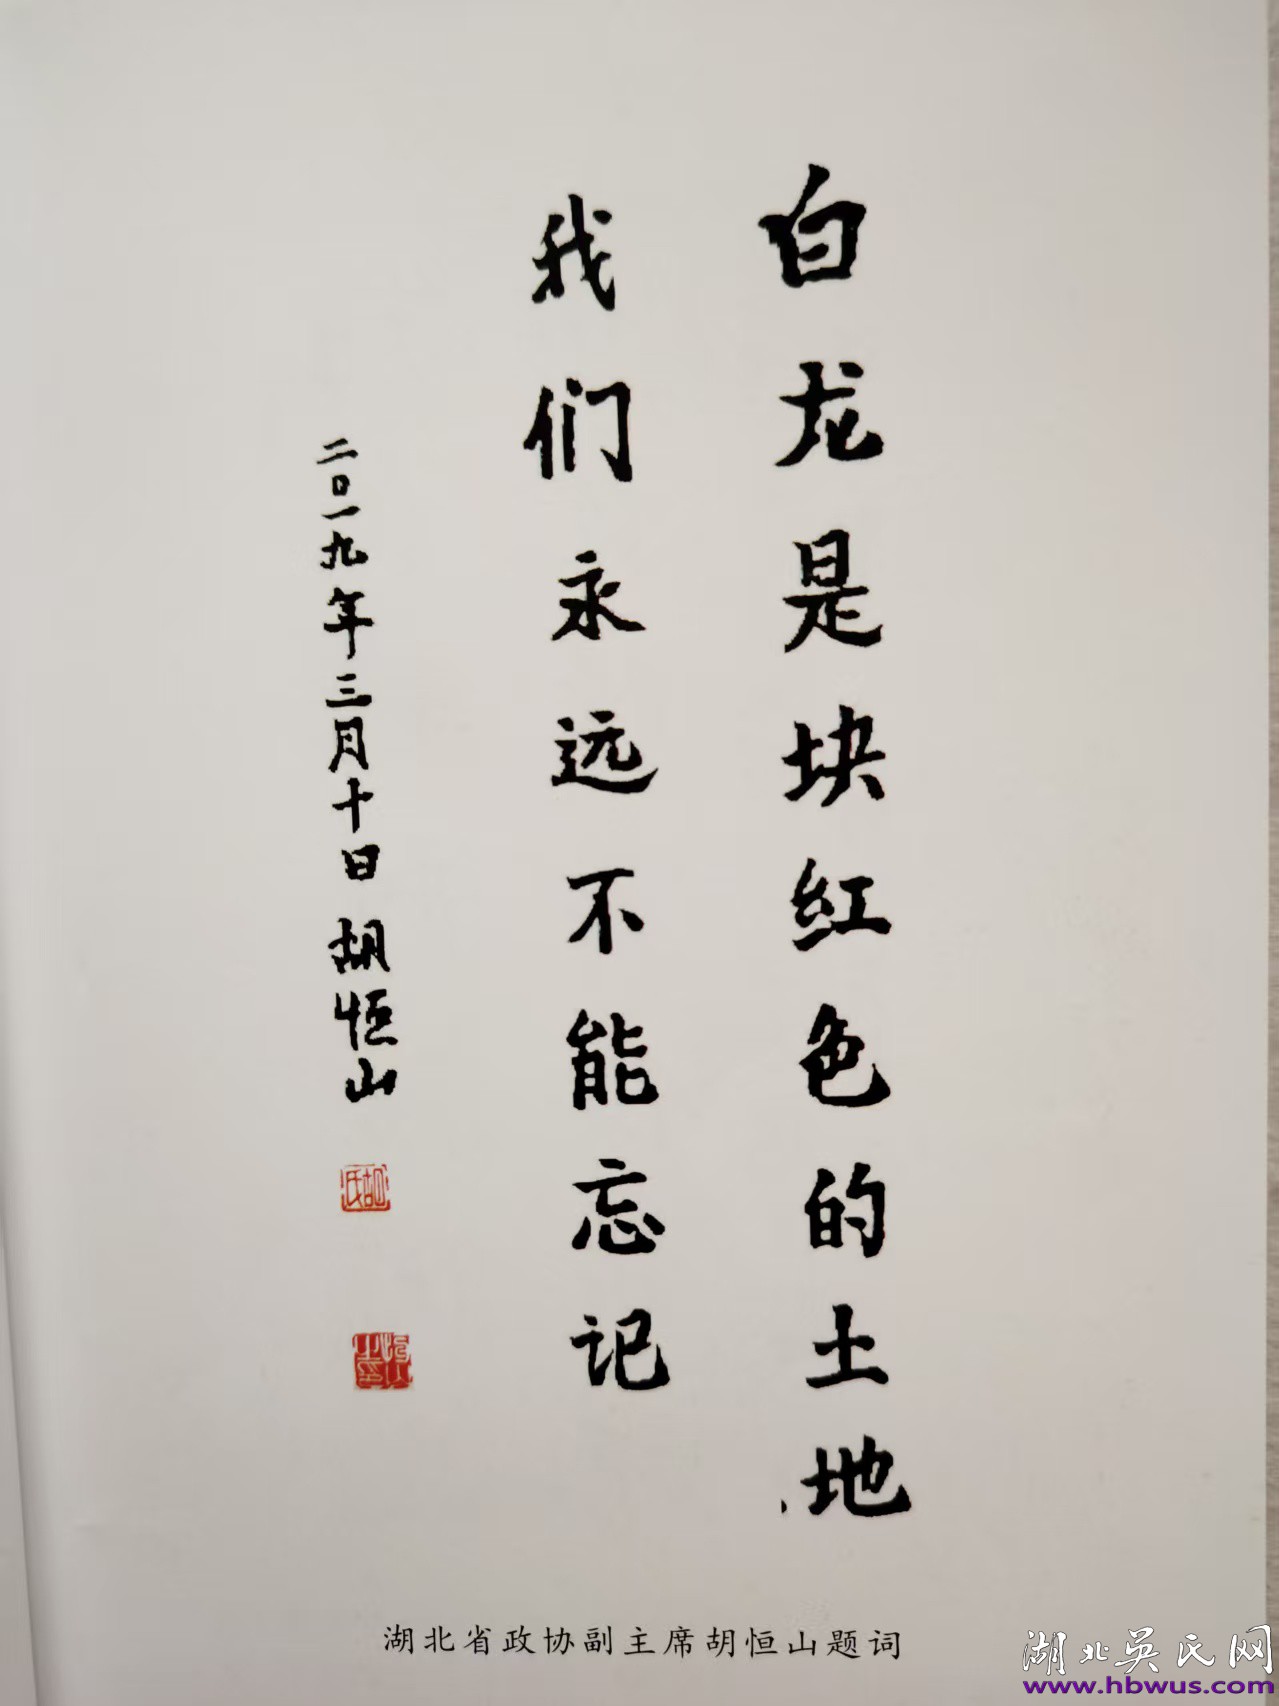 白龙是块红色的土地
我们永远不能忘记
二〇一九年三月十日 胡恒山
胡氏
湖北省政协副主席胡恒山题词
湖北吴氏网
www.hbwus.com